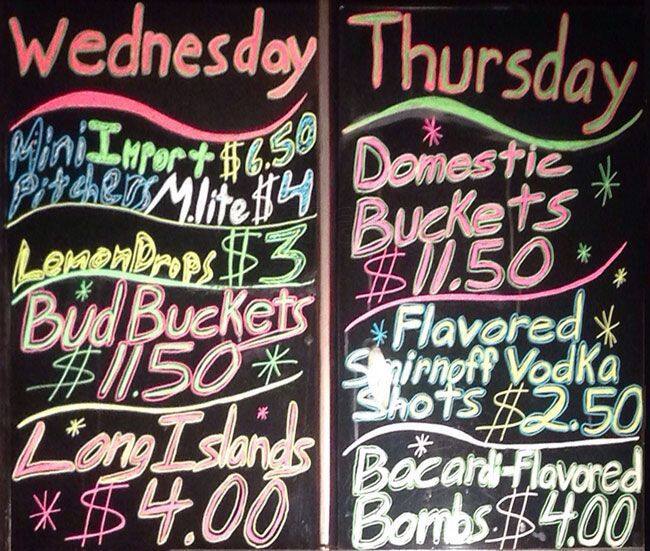 Wednesday
Mini Import $6.50
Pitchers M.lite $4
Lemon Drops $3
Bud Buckets
$11.50
Long Islands
$4.00
Thursday
Domestic
Buckets
$11.50
Flavored
Smirnoff Vodka
Shots $2.50
Bacardi-Flavored
Bombs $4.00